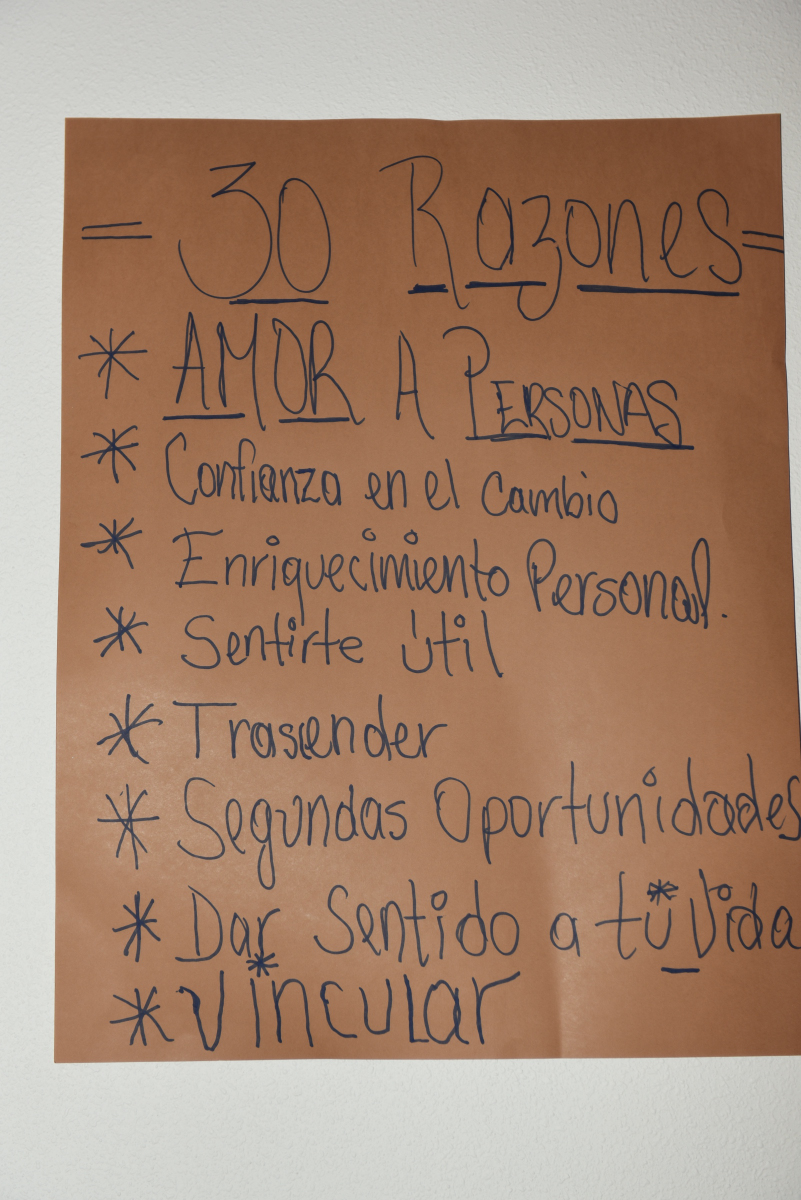 = 30 Razones =
* AMOR A PERSONAS
* Confianza en el Cambio
* Enriquecimiento Personal.
* Sentirte útil
* Trascender
* Segundas Oportunidades
* Dar Sentido a tu Vida
* Vincular